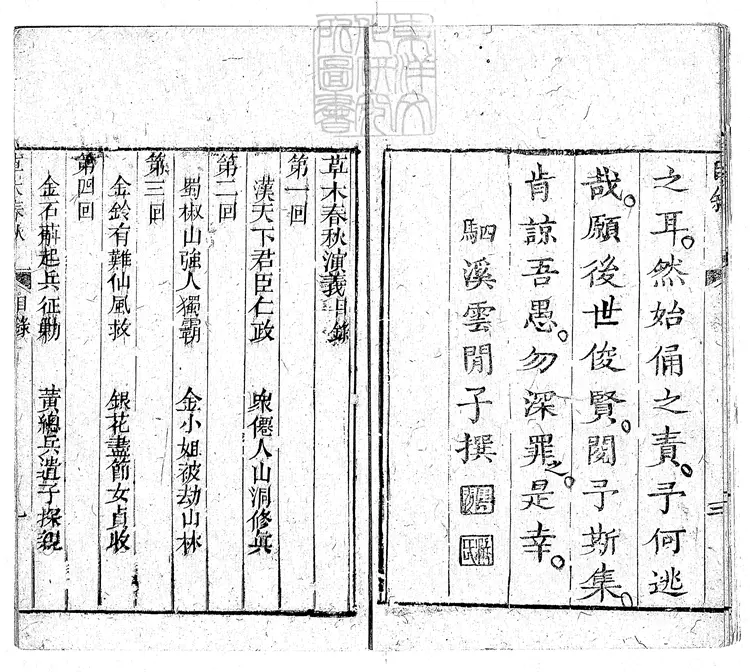 自敘
之耳。然始俑之責。予何逃
哉。願後世俊賢。閱予斯集。
肯諒吾愚。勿深罪之。是幸。
駟溪雲間子撰
三
東洋文
化研究
所圖書
草木春秋演義目錄
第一回
漢天下君臣仁政 眾僊人山洞修真
第二回
蜀椒山強人獨霸 金小姐被劫山林
第三回
金鈴有難仙風救 銀花盡節女貞收
第四回
金石斛起兵征勦 黃總兵遣子探親
草木春秋 目錄